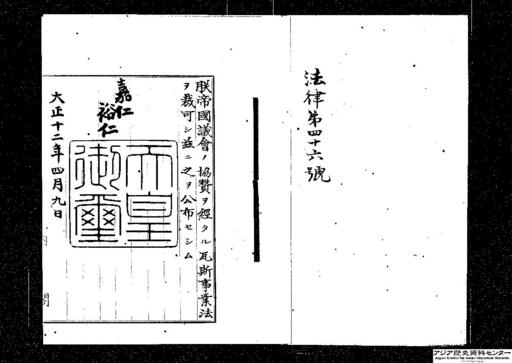 法律第四十六號
朕帝國議會ノ協贊ヲ經タル瓦斯事業法
ヲ裁可シ茲ニ之ヲ公布セシム
嘉仁
裕仁
天皇御璽
大正十二年四月九日
内閣
アジア歴史資料センター
Japan Center for Asian Historical Records